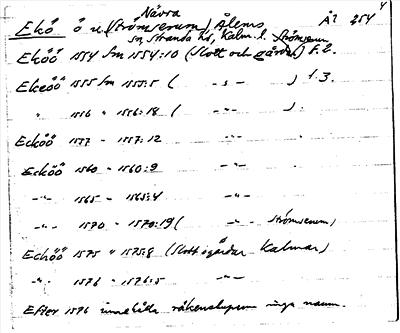 Norra
Ekö ö u. (Strömserum) Ålems Å? 254 4
sn, Stranda hd, Kalm. l. Strömserum
Eköö 1554 sm 1554:10 (Slott och gårdar) f. 2.
Ekeöö 1555 sm 1555:5 ( - s - ) f. 3.
" 1556 - 1556:18 ( - " - ) .
Ecköö 1557 - 1557:12
Ecköö 1560 - 1560:9 - " -
- " - 1565 - 1565:4 - " -
- " - 1570 - 1570:19 ( - " - Strömserum)
Echöö 1575 " 1575:8 (Slott o gårdar Kalmar)
- " - 1576 - 1576:5 - " -
Efter 1576 innehålla räkenskaperna inga namn.